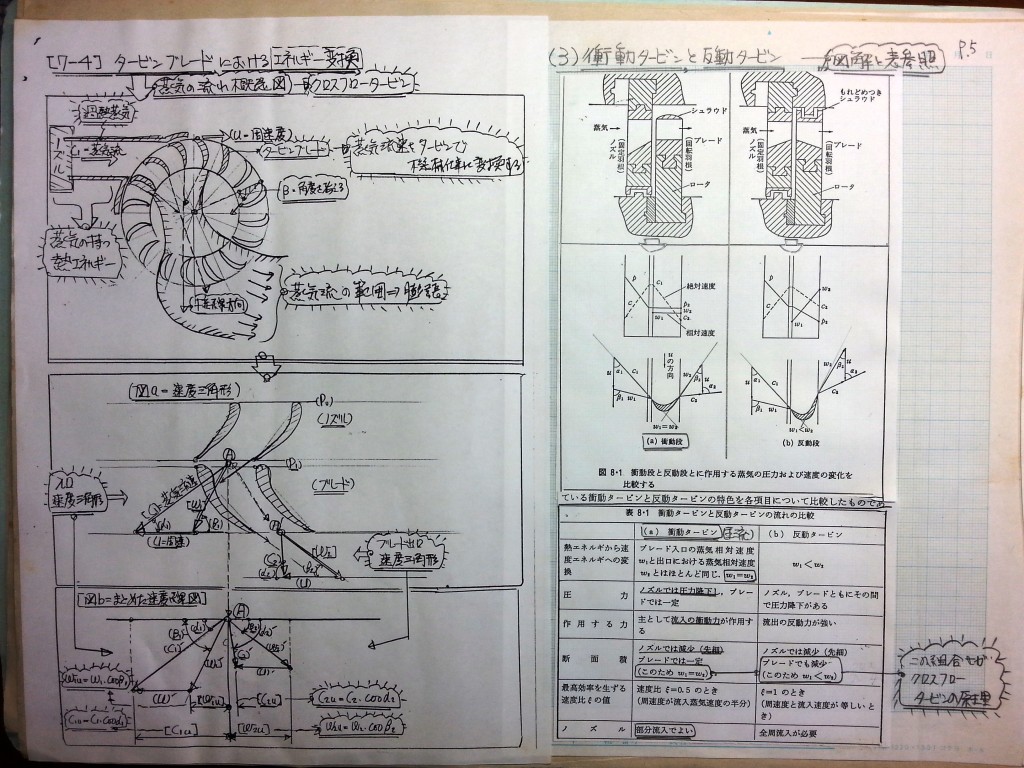 [7-4] タービンブレードにおけるエネルギー変換
(蒸気の流れ概念図)
クロスフロータービン
過熱蒸気
ノズル
C₁=蒸気流
U=周速度
タービンブレード
蒸気流速をタービンで
機械仕事に変換する
β=角度を考える
蒸気の持つ
熱エネルギー
蒸気流の範囲⇒膨張
(図a=速度三角形)
(P₀)
(ノズル)
(A)
(P₁)
(ブレード)
入口
速度三角形
(U=周速)
ブレード出口
速度三角形
[図b=まとめた速度線図]
(A)
W₁u=W₁·cosβ₁
C₁u=C₁·cosα₁
C₂u=C₂·cosα₂
W₂u=W₂·cosβ₂
[C₁u]
[W₂u]
(3) 衝動タービンと反動タービン
図解と表参照
P.5
もれどめつき
シュラウド
シュラウド
蒸気
ノズル
(固定羽根)
ブレード
(回転羽根)
ロータ
蒸気
ノズル
(固定羽根)
ブレード
(回転羽根)
ロータ
絶対速度
相対速度
uの方向
w₁=w₂
w₁<w₂
(a) 衝動段
(b) 反動段
図 8·1 衝動段と反動段とに作用する蒸気の圧力および速度の変化を
比較する
ている衝動タービンと反動タービンの特色を各項目について比較したものであ
表 8·1 衝動タービンと反動タービンの流れの比較
(a) 衝動タービン
(b) 反動タービン
熱エネルギから速度エネルギへの変換
ブレード入口の蒸気相対速度
w₁と出口における蒸気相対速度
w₂とはほとんど同じ. w₁=w₂
w₁<w₂
圧力
ノズルでは圧力降下し, ブレードでは一定
ノズル, ブレードともにその間で圧力降下がある
作用する力
主として流入の衝動力が作用する
流出の反動力が強い
断面積
ノズルでは減少 (先細)
ブレードでは一定
(このため w₁=w₂)
ノズルでは減少 (先細)
ブレードでも減少
(このため w₁<w₂)
最高効率を生ずる速度比ξの値
速度比 ξ=0.5 のとき
(周速度が流入蒸気速度の半分)
ξ=1 のとき
(周速度と流入速度が等しいとき)
ノズル
部分流入でよい
全周流入が必要
この組合せが
クロスフロー
タービンの原理